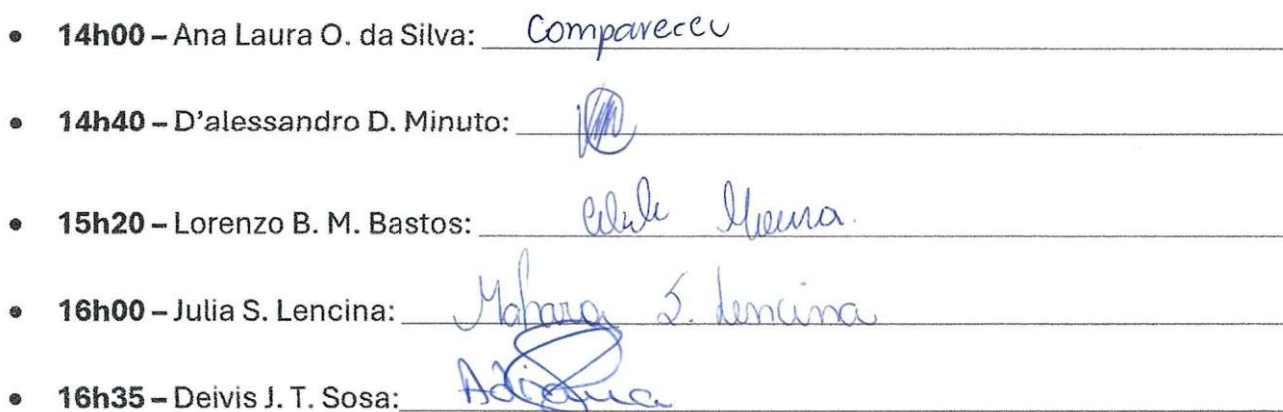 • 14h00 – Ana Laura O. da Silva: Compareceu
• 14h40 – D'alessandro D. Minuto:
• 15h20 – Lorenzo B. M. Bastos: Moura.
• 16h00 – Julia S. Lencina: S. Lencina
• 16h35 – Deivis J. T. Sosa: Adriana